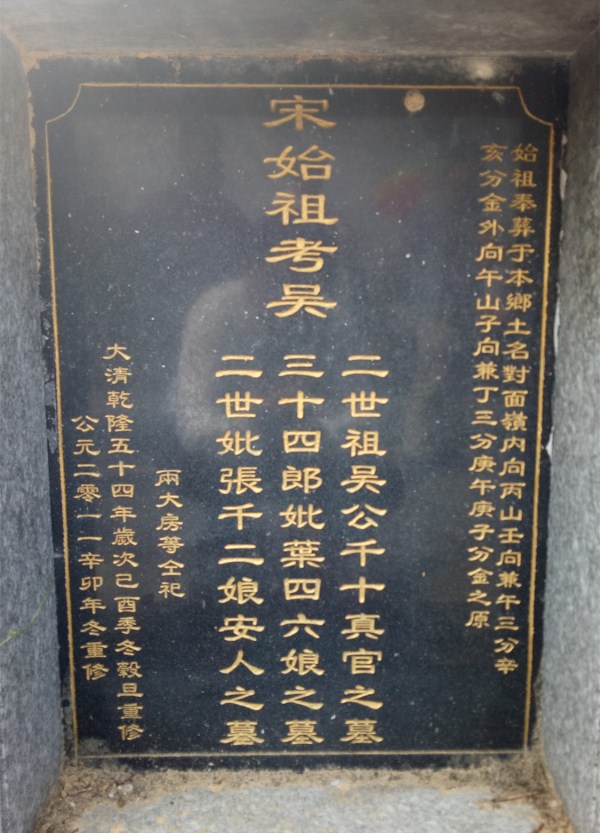 始祖奉葬于本鄉土名對面嶺内向丙山壬向兼午三分辛
亥分金外向午山子向兼丁三分庚午庚子分金之原
宋始祖考吴
二世祖吴公千十真官之墓
三十四郎妣葉四六娘之墓
二世妣張千二娘安人之墓
兩大房等仝祀
大清乾隆五十四年歲次己酉季冬穀旦重修
公元二零一一辛卯年冬重修